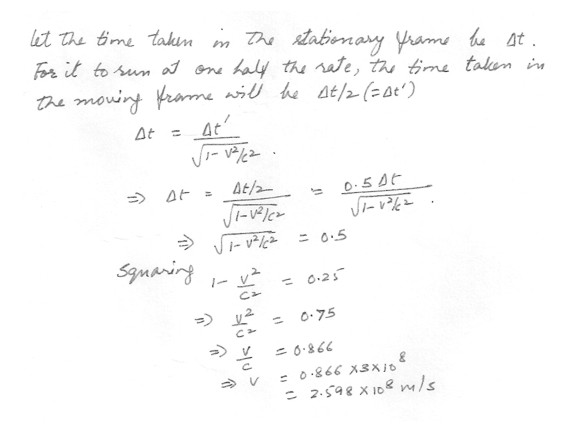 let the time taken in the stationary frame be Δt.
For it to run at one half the rate, the time taken in
the moving frame will be Δt/2 (=Δt')
Δt = Δt' / √(1-v²/c²) .
⇒ Δt = (Δt/2) / √(1-v²/c²) = 0.5 Δt / √(1-v²/c²) .
⇒ √(1-v²/c²) = 0.5
Squaring 1 - v²/c² = 0.25
⇒ v²/c² = 0.75
⇒ v/c = 0.866
⇒ v = 0.866 X3X10⁸
= 2.598 X 10⁸ m/s